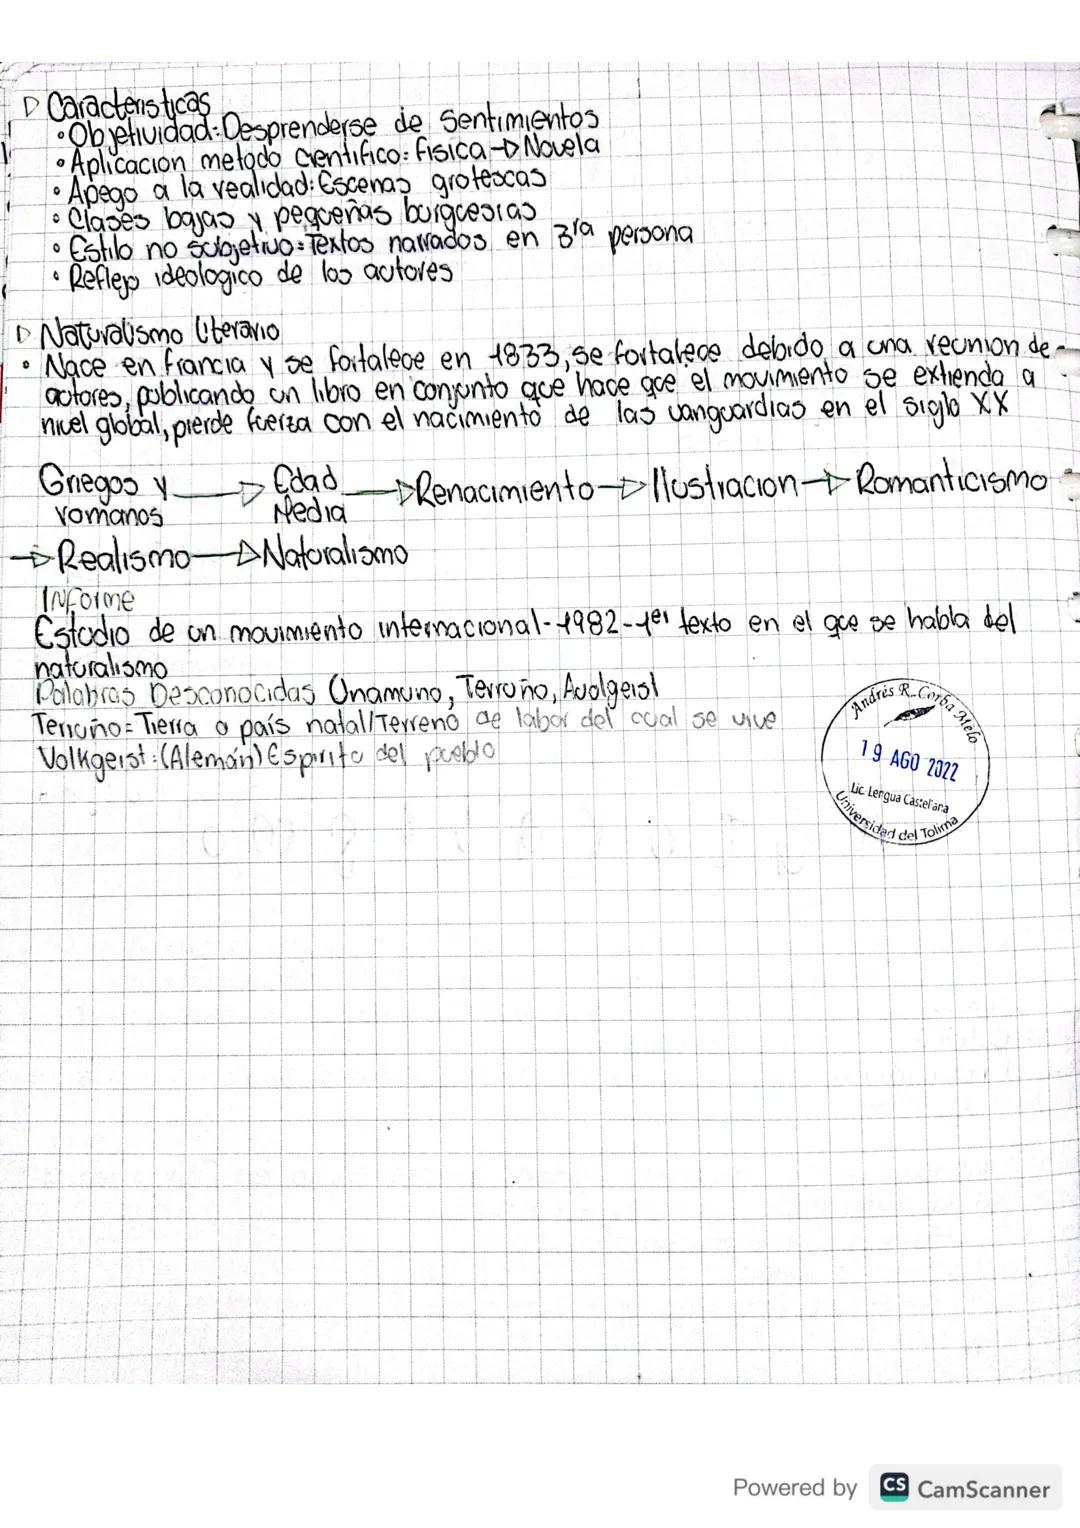 Caracteristicas
• Objetividad: Desprenderse de Sentimientos
• Aplicacion metodo cientifico: fisica → Novela
• Apego a la realidad: Escenas grotescas
• Clases bajas y pequeñas burguesias
• Estilo no subjetivo: Textos narrados en 3ra persona
• Reflejo ideologico de los autores
Naturalismo literario
• Nace en francia y se fortalece en 1833, se fortalece debido a una reunion de
autores, publicando un libro en conjunto que hace que el movimiento se extienda a
nivel global, pierde fuerza con el nacimiento de las vanguardias en el siglo XX
Griegos y romanos → Edad Media → Renacimiento → Ilustracion → Romanticismo
→ Realismo → Naturalismo
Informe
Estudio de un movimiento internacional - 1982 - 1er texto en el que se habla del
naturalismo
Palabras Desconocidas Unamuno, Terruño, Avolgeist
Terruño = Tierra o país natal/Terreno de labor del cual se vive
Volkgeist: (Alemán) Espiritu del pueblo
Andrés R. Corba Melo
19 AGO 2022
Lic. Lengua Castellana
Universidad del Tolima
Powered by CS CamScanner